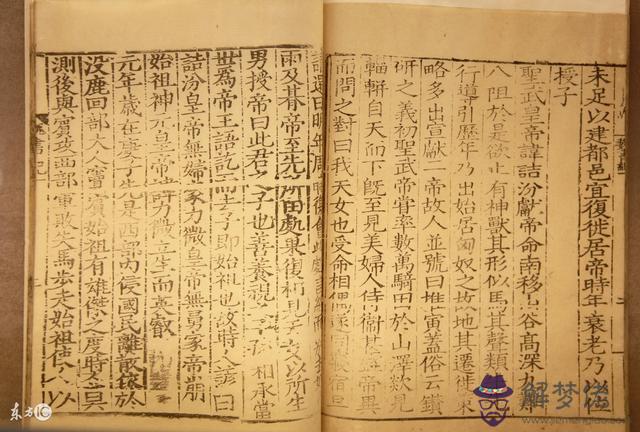 未足以建都邑宜復徙居帝時年衰老乃以位
授子
聖武皇帝諱詰汾獻帝命南移山谷高深
八阻於是欲止有神獸其形似馬其聲類
行導引歷年乃出始居匈奴之故地其遷徙策
略多出宣獻二帝故人並號曰推寅蓋俗云鑽
研之義初聖武帝嘗率數萬騎田於山澤欻見
輜軿自天而下既至見美婦人侍衛甚盛帝異
而問之對曰我天女也受命相偶遂同寢宿旦
請還曰明年周時復會此處
雨及朞帝至先所田處果復相見天女以所生
男授帝曰此君之子也善養視之子孫相承當
世爲帝王語訖而去子即始祖也故時人諺曰
詰汾皇帝無婦家力微皇帝無舅家帝崩
始祖神元皇帝諱力微立生而英叡
元年歲在庚子先是西部內侵國民離散依於
沒鹿回部大人竇賓始祖有雄傑之度時人莫
測後與賓攻西部軍敗失馬步走始祖使人以
東方IC
解梦佬
www.jiemenglao.com